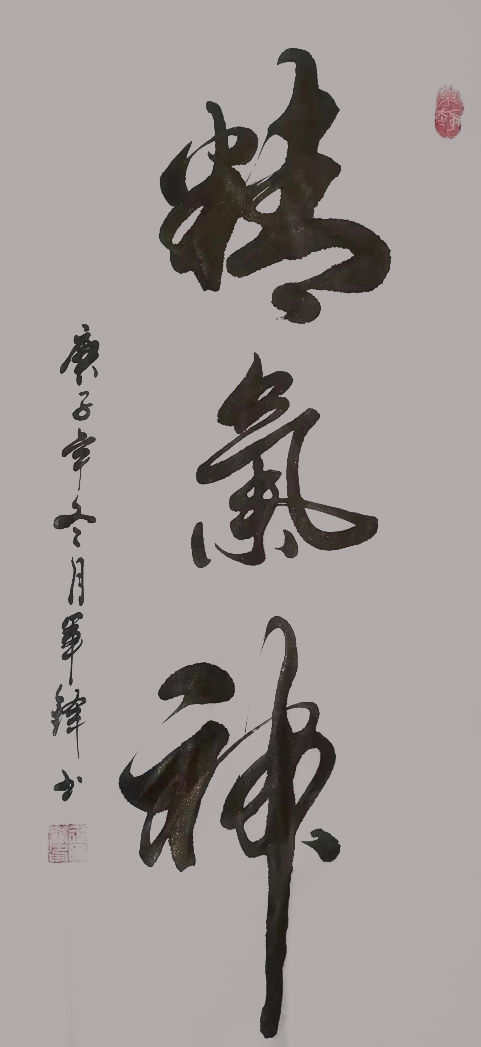 精氣神
庚子年冬月军锋书